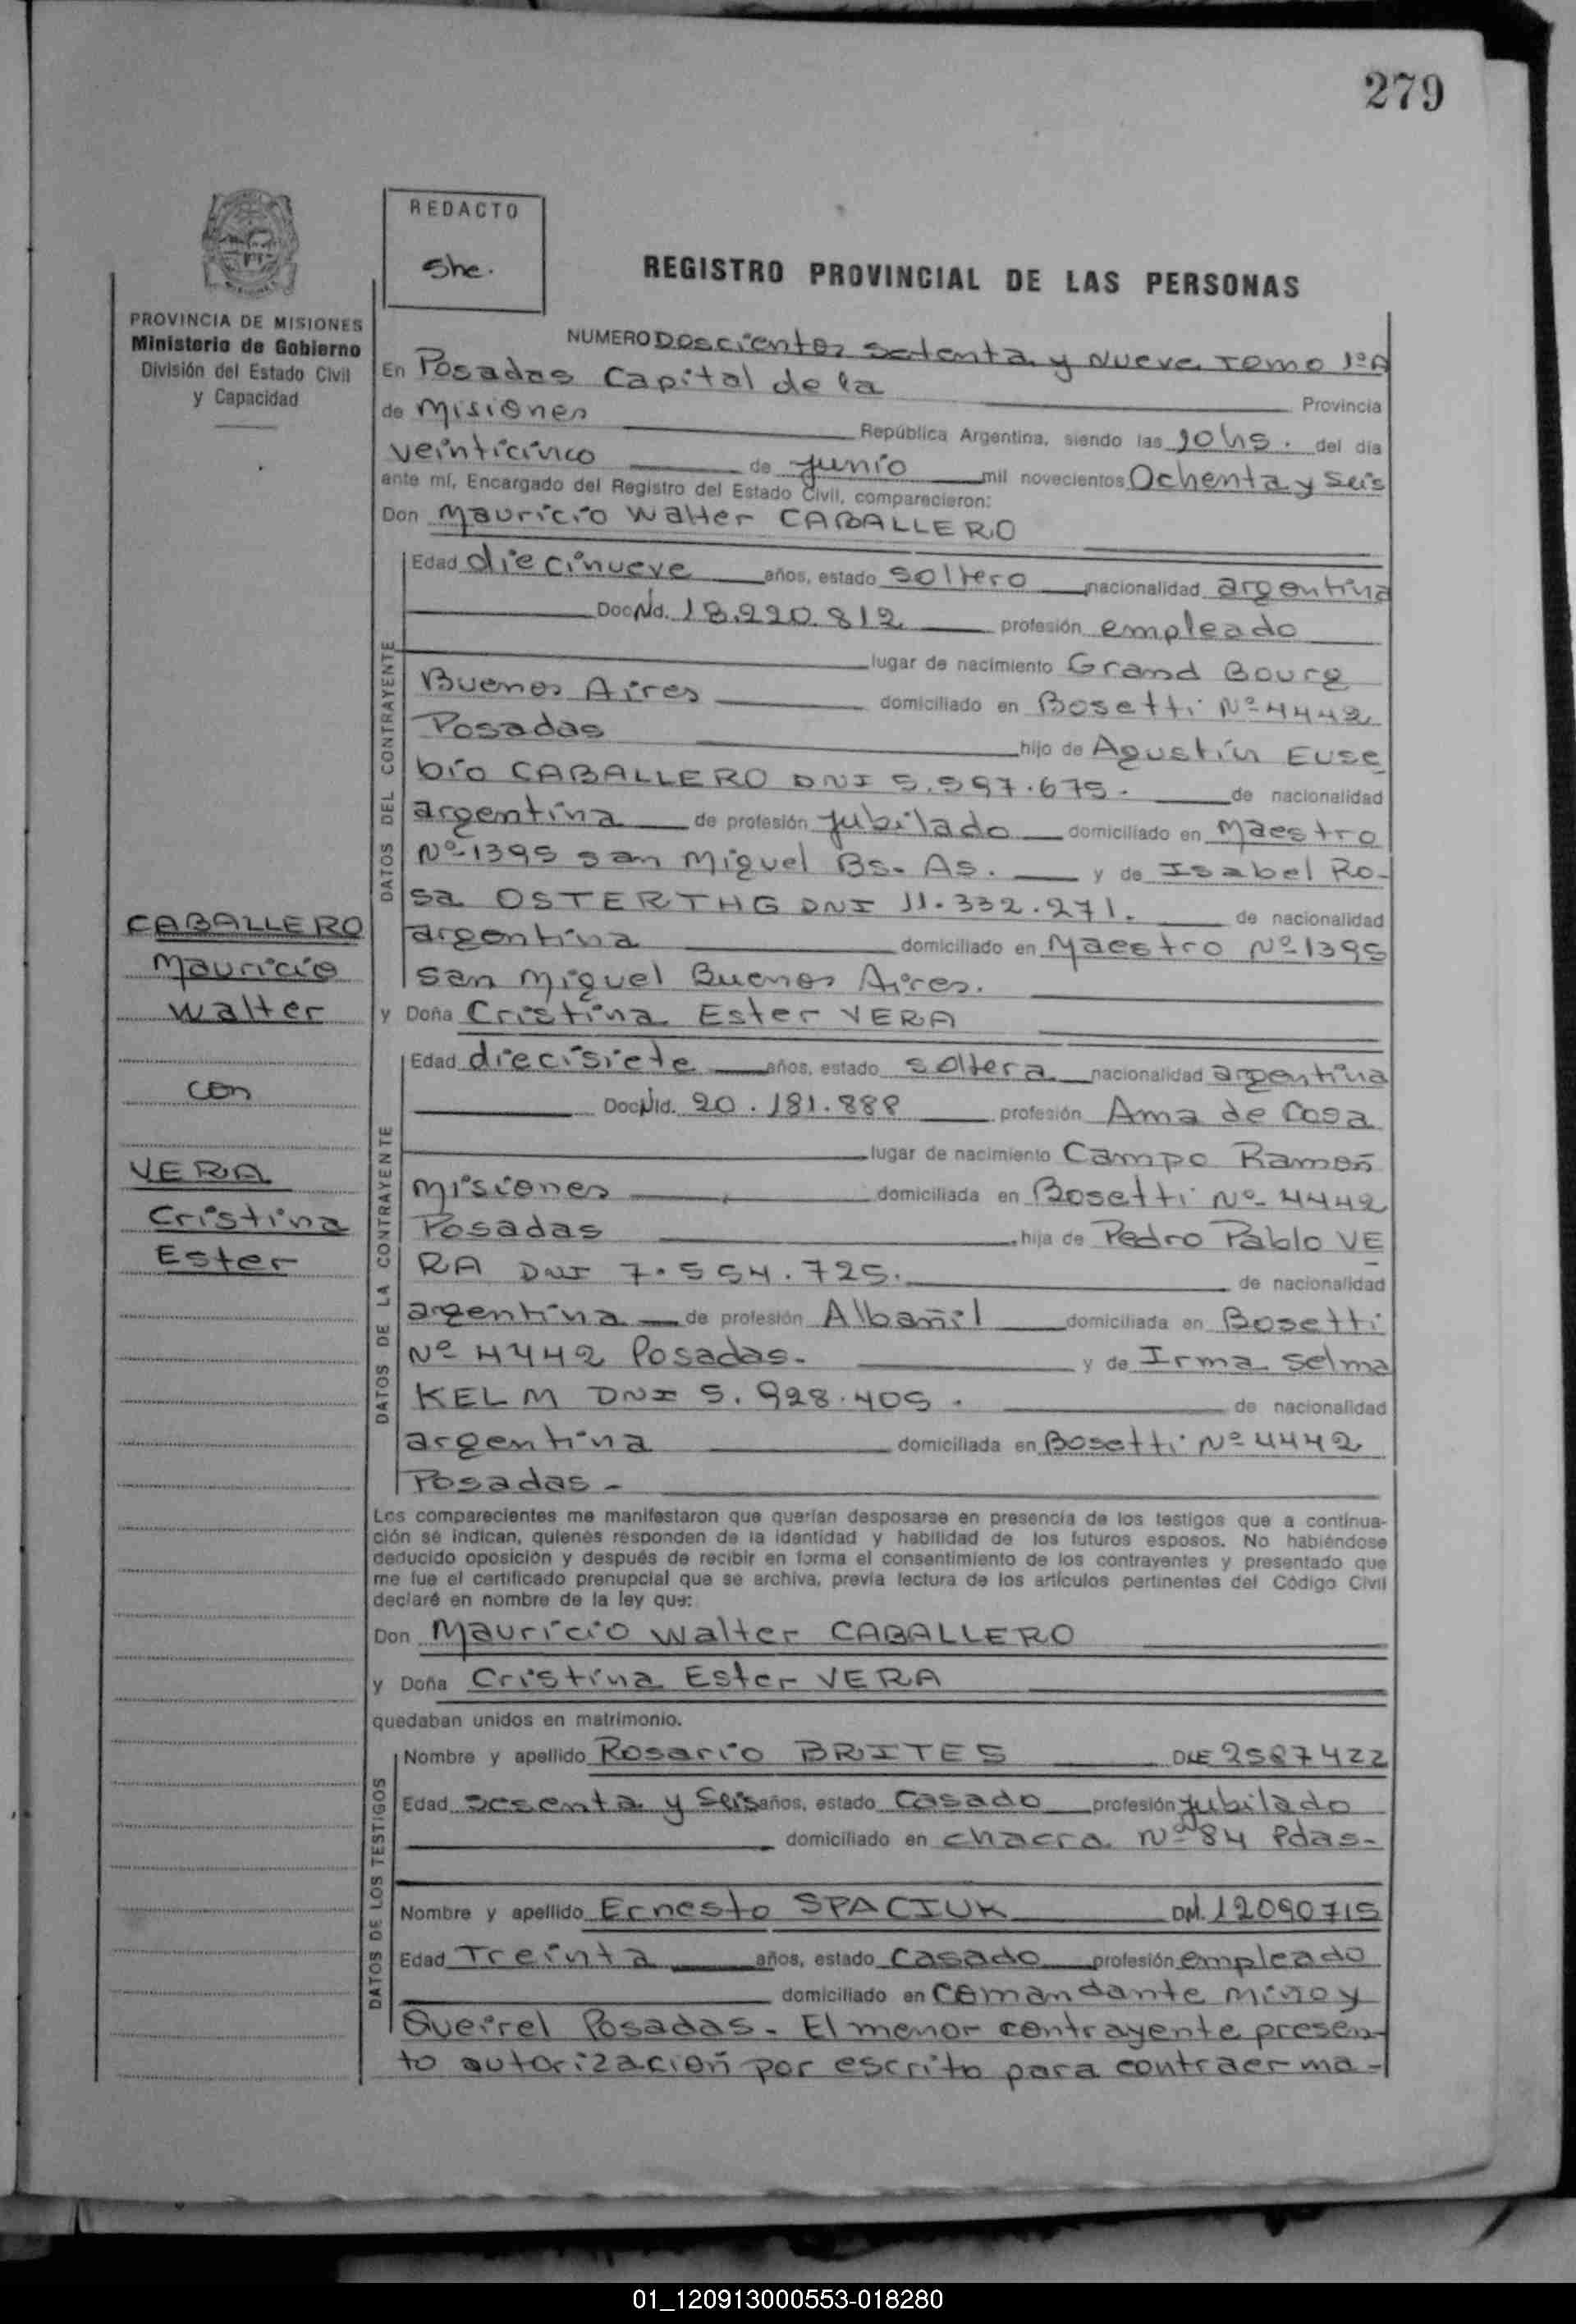 279
REDACTO
She.
REGISTRO PROVINCIAL DE LAS PERSONAS
PROVINCIA DE MISIONES
Ministerio de Gobierno
División del Estado Civil
y Capacidad
NUMERO Doscientos Setenta y Nueve Tomo 1º A
En Posadas Capital de la Provincia
de Misiones República Argentina, siendo las 10 hs. del día
veinticinco de junio mil novecientos Ochenta y Seis
ante mí, Encargado del Registro del Estado Civil, comparecieron:
Don Mauricio Walter CABALLERO
DATOS DEL CONTRAYENTE
Edad diecinueve años, estado soltero nacionalidad argentina
Doc. Nid. 18.220.812 profesión empleado
lugar de nacimiento Grand Bourg
Buenos Aires domiciliado en Bosetti Nº 4442
Posadas hijo de Agustín Euse
bio CABALLERO DNI 5.597.675. de nacionalidad
argentina de profesión jubilado domiciliado en Maestro
Nº 1395 San Miguel Bs. As. y de Isabel Ro-
sa OSTERTHG DNI 11.332.271. de nacionalidad
argentina domiciliado en Maestro Nº 1395
San Miguel Buenos Aires.
y Doña Cristina Ester VERA
DATOS DE LA CONTRAYENTE
Edad diecisiete años, estado soltera nacionalidad argentina
Doc. Nid. 20.181.888 profesión Ama de Casa
lugar de nacimiento Campo Ramón
Misiones domiciliada en Bosetti Nº 4442
Posadas hija de Pedro Pablo VE
RA DNI 7.554.725. de nacionalidad
argentina de profesión Albañil domiciliada en Bosetti
Nº 4442 Posadas. y de Irma Selma
KELM DNI 5.928.405. de nacionalidad
argentina domiciliada en Bosetti Nº 4442
Posadas -
CABALLERO
Mauricio
Walter
con
VERA
Cristina
Ester
Los comparecientes me manifestaron que querían desposarse en presencia de los testigos que a continua-
ción se indican, quienes responden de la identidad y habilidad de los futuros esposos. No habiéndose
deducido oposición y después de recibir en forma el consentimiento de los contrayentes y presentado que
me fue el certificado prenupcial que se archiva, previa lectura de los artículos pertinentes del Código Civil
declaré en nombre de la ley que:
Don Mauricio Walter CABALLERO
y Doña Cristina Ester VERA
quedaban unidos en matrimonio.
DATOS DE LOS TESTIGOS
Nombre y apellido Rosario BRITES DLE 2587422
Edad sesenta y Seis años, estado Casado profesión jubilado
domiciliado en chacra Nº 84 Pdas-
Nombre y apellido Ernesto SPACIUK DNI. 12090715
Edad Treinta años, estado Casado profesión empleado
domiciliado en Comandante Miño y
Queirel Posadas - El menor contrayente presen-
to autorización por escrito para contraer ma-
01_120913000553-018280